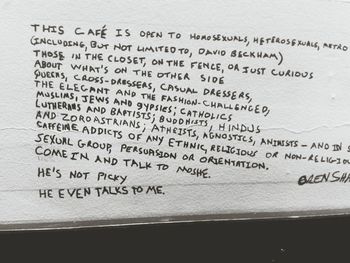 THIS CAFÉ IS OPEN TO HOMOSEXUALS, HETEROSEXUALS, METRO
(INCLUDING, BUT NOT LIMITED TO, DAVID BECKHAM)
THOSE IN THE CLOSET, ON THE FENCE, OR JUST CURIOUS
ABOUT WHAT'S ON THE OTHER SIDE
QUEERS, CROSS-DRESSERS, CASUAL DRESSERS,
THE ELEGANT AND THE FASHION-CHALLENGED,
MUSLIMS, JEWS AND GYPSIES; CATHOLICS
LUTHERANS AND BAPTISTS; BUDDHISTS, HINDUS
AND ZOROASTRIANS; ATHEISTS, AGNOSTICS, ANIMISTS - AND IN S
CAFFEINE ADDICTS OF ANY ETHNIC, RELIGIOUS OR NON-RELIGIOU
SEXUAL GROUP, PERSUASION OR ORIENTATION.
COME IN AND TALK TO MOSHE.
HE'S NOT PICKY
HE EVEN TALKS TO ME.
OREN SHA